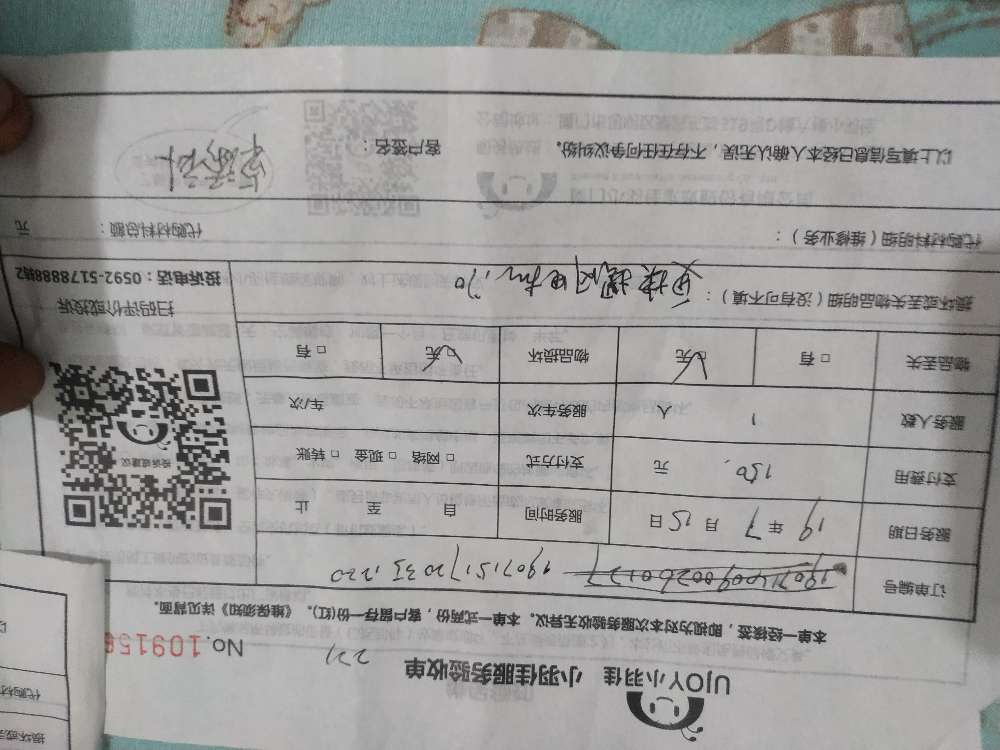 UJOY小羽佳 小羽佳服务验收单
No.109156
本单一经接签，即视为对本次服务验收无异议。本单一式两份，客户留存一份(红)。《维保须知》详见背面。
订单编号 1907151720351220
服务日期 19 年 7 月 15 日 服务时间 自 至 止
支付费用 150. 元 支付方式 □ 网络 □ 现金 □ 转账
服务人数 1 人 服务车次 车/次
物品丢失 □ 有 ☑ 无 物品损坏 ☑ 无 □ 有
损坏或丢失物品明细（没有可不填）： 更换
扫码评价或投诉
投诉电话：0592-5178888转2
投诉或建议
代购材料明细（维修业务）： 代购材料总额： 元
以上填写信息已经本人确认无误，不存在任何争议纠纷。 客户签名：
损坏或丢
代购材